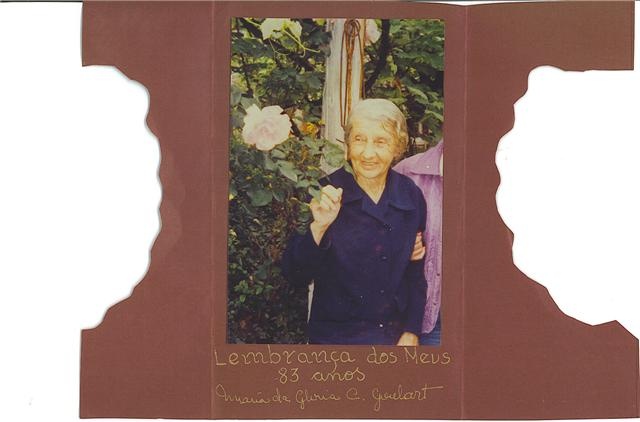 Lembrança dos Meus
83 anos
Maria da Gloria C. Goulart